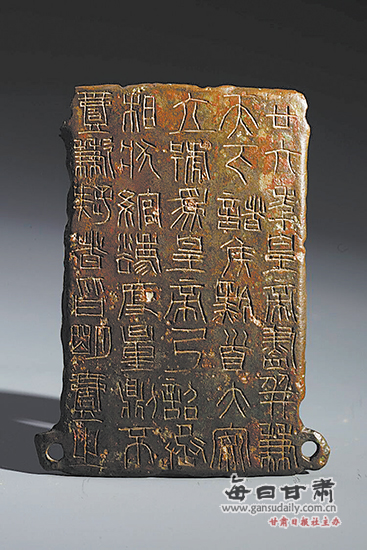 廿六年皇帝盡并兼
天下諸侯黔首大安
立號為皇帝乃詔丞
相狀綰灋度量則不
壹歉疑者皆明壹之
每日甘肃
www.gansudaily.com.cn
甘肃日报社主办